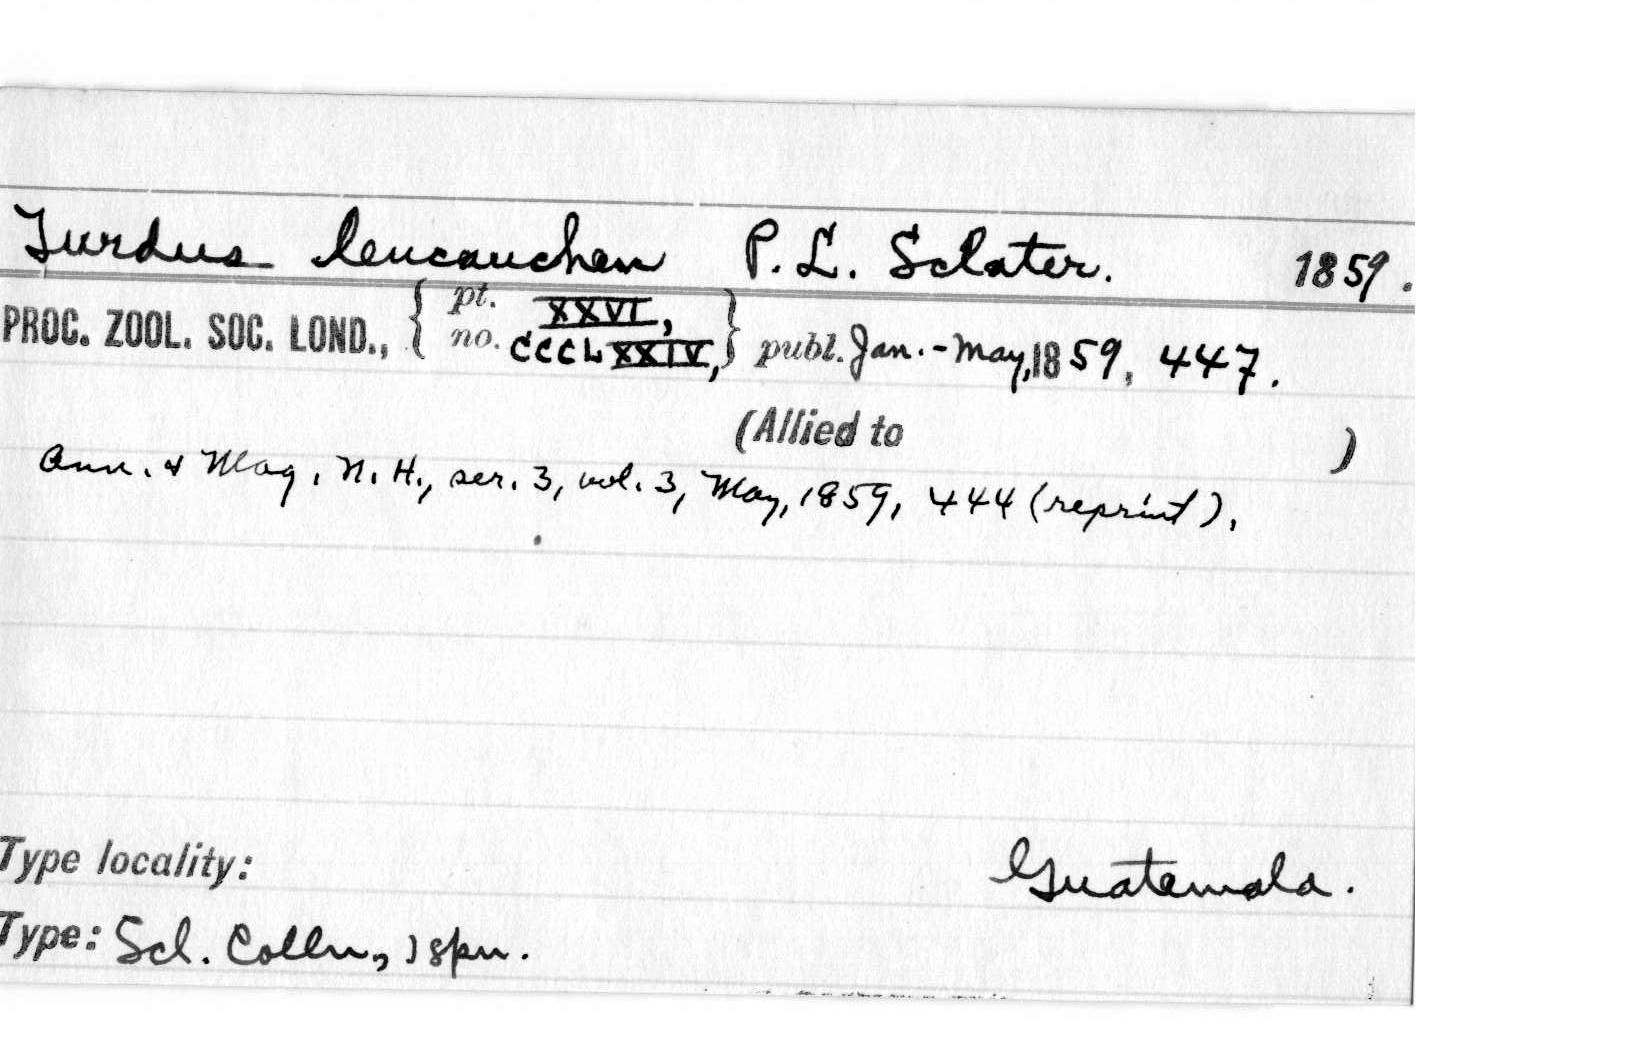 Turdus leucauchen P. L. Sclater. 1859.
PROC. ZOOL. SOC. LOND., { pt. XXVI, no. CCCLXXIV, } publ. Jan.-May, 1859, 447.
(Allied to )
Ann. & Mag. N. H., ser. 3, vol. 3, May, 1859, 444 (reprint).
Type locality: Guatemala.
Type: Scl. Colln, 1 spn.